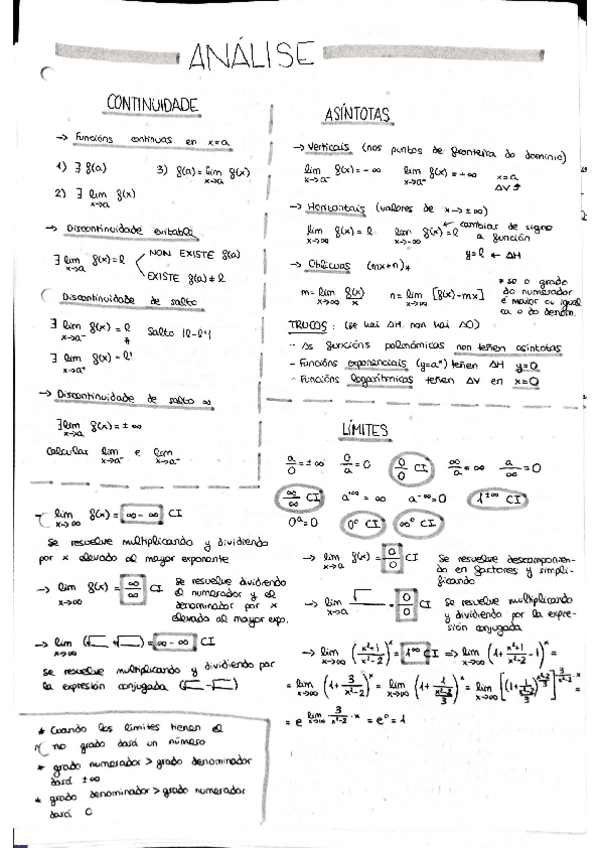 ANÁLISE
CONTINUIDADE
→ Funcións continuas en x=a
1) ∃ f(a)
3) f(a) = lim x→a f(x)
2) ∃ lim x→a f(x)
→ Discontinuidade evitable
∃ lim x→a f(x) = l
NON EXISTE f(a)
EXISTE f(a) ≠ l
Discontinuidade de salto
∃ lim x→a⁻ f(x) = l
≠
Salto |l-l'|
∃ lim x→a⁺ f(x) = l'
→ Discontinuidade de salto ∞
∃ lim x→a f(x) = ±∞
Calcular lim x→a⁺ e lim x→a⁻
ASÍNTOTAS
→ Verticais (nos puntos de fronteira do dominio)
lim x→a⁻ f(x) = -∞
lim x→a⁺ f(x) = +∞
x=a
→ Horizontais (valores de x→±∞)
lim x→∞ f(x) = l
lim x→-∞ f(x) = l
← cambiar de signo
a función
y=l ← AH
→ Oblicuas (mx+n)*
m = lim x→∞ f(x)/x
n = lim x→∞ [f(x)-mx]
* se o grado
do numerador
é maior ou igual
ca o do denom.
TRUCOS: (se hai AH non hai AO)
- As funcións polinómicas non teñen asíntotas
- Funcións exponenciais (y=aˣ) teñen AH y=0
- Funcións logarítmicas teñen AV en x=0
LÍMITES
a/0 = ±∞
0/a = 0
0/0 CI
∞/a = ∞
a/∞ = 0
∞/∞ CI
a⁺∞ = ∞
a⁻∞ = 0
1^±∞ CI
0ᵃ = 0
0⁰ CI
∞⁰ CI
lim x→∞ f(x) = ∞-∞ CI
Se resuelve multiplicando y dividiendo
por x elevado al mayor exponente
→ lim x→∞ f(x) = ∞/∞ CI
Se resuelve dividiendo
el numerador y el
denominador por x
elevado al mayor exp.
→ lim x→∞ (√ + √) = ∞-∞ CI
Se resuelve multiplicando y dividiendo por
la expresión conjugada (√ - √)
→ lim x→a f(x) = 0/0 CI
Se resuelve descomponien-
do en factores y simpli-
ficando
→ lim x→a √/ = 0/0 CI
Se resuelve multiplicando
y dividiendo por la expre-
sión conjugada
→ lim x→∞ (x²+1/x²-2)ˣ = 1^∞ CI ⇒ lim x→∞ (1 + x²+1/x²-2 - 1)ˣ =
= lim x→∞ (1 + 3/x²-2)ˣ = lim x→∞ (1 + 1/(x²-2/3))ˣ = lim x→∞ [(1 + 1/(x²-2/3))^(x²-2/3)]^(3/x²-2 · x) =
= e^(lim x→∞ 3/x²-2 · x) = e⁰ = 1
* Cuando los límites tienen el
no grado dará un número
* grado numerador > grado denominador
dará ±∞
* grado denominador > grado numerador
dará 0